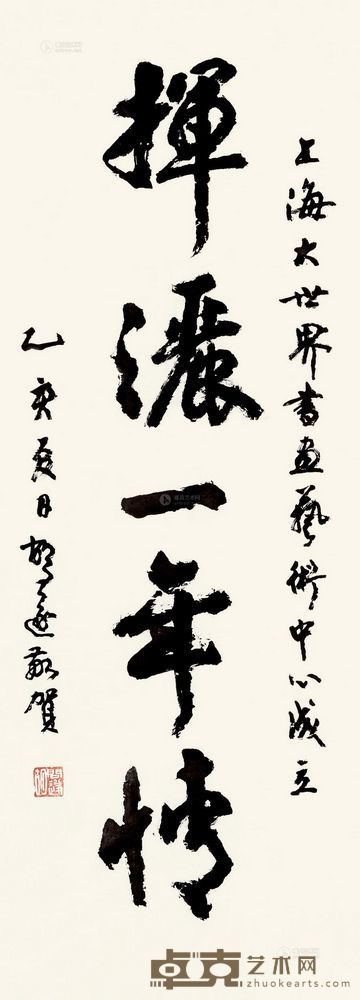 上海大世界書畫藝術中心成立
揮灑一年情
乙亥夏日胡问遂敬賀
卓克艺术网
www.zhuokearts.com